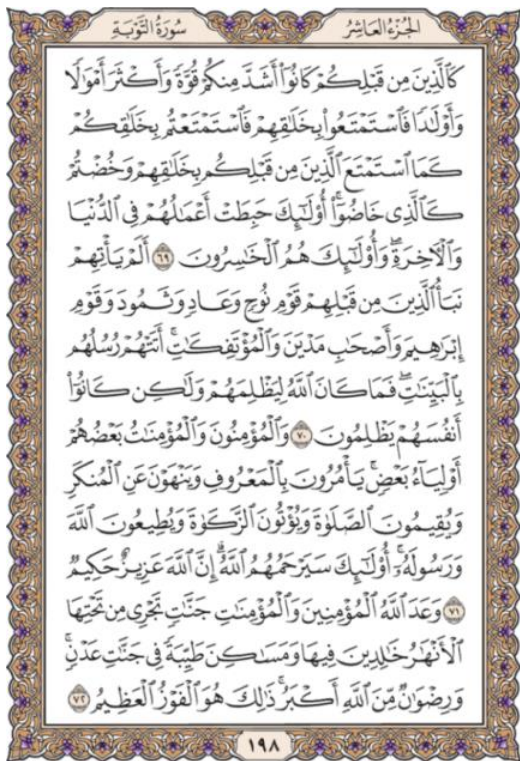 الجزء العاشر
سورة التوبة
كَالَّذِينَ مِن قَبْلِكُمْ كَانُوٓا۟ أَشَدَّ مِنكُمْ قُوَّةً وَأَكْثَرَ أَمْوَٰلًا
وَأَوْلَـٰدًا فَٱسْتَمْتَعُوا۟ بِخَلَـٰقِهِمْ فَٱسْتَمْتَعْتُم بِخَلَـٰقِكُمْ
كَمَا ٱسْتَمْتَعَ ٱلَّذِينَ مِن قَبْلِكُم بِخَلَـٰقِهِمْ وَخُضْتُمْ
كَٱلَّذِى خَاضُوٓا۟ ۚ أُو۟لَـٰٓئِكَ حَبِطَتْ أَعْمَـٰلُهُمْ فِى ٱلدُّنْيَا
وَٱلْـَٔاخِرَةِ ۖ وَأُو۟لَـٰٓئِكَ هُمُ ٱلْخَـٰسِرُونَ ٦٩ أَلَمْ يَأْتِهِمْ
نَبَأُ ٱلَّذِينَ مِن قَبْلِهِمْ قَوْمِ نُوحٍ وَعَادٍ وَثَمُودَ وَقَوْمِ
إِبْرَٰهِيمَ وَأَصْحَـٰبِ مَدْيَنَ وَٱلْمُؤْتَفِكَـٰتِ ۚ أَتَتْهُمْ رُسُلُهُم
بِٱلْبَيِّنَـٰتِ ۖ فَمَا كَانَ ٱللَّهُ لِيَظْلِمَهُمْ وَلَـٰكِن كَانُوٓا۟
أَنفُسَهُمْ يَظْلِمُونَ ٧٠ وَٱلْمُؤْمِنُونَ وَٱلْمُؤْمِنَـٰتُ بَعْضُهُمْ
أَوْلِيَآءُ بَعْضٍ ۚ يَأْمُرُونَ بِٱلْمَعْرُوفِ وَيَنْهَوْنَ عَنِ ٱلْمُنكَرِ
وَيُقِيمُونَ ٱلصَّلَوٰةَ وَيُؤْتُونَ ٱلزَّكَوٰةَ وَيُطِيعُونَ ٱللَّهَ
وَرَسُولَهُۥٓ ۚ أُو۟لَـٰٓئِكَ سَيَرْحَمُهُمُ ٱللَّهُ ۗ إِنَّ ٱللَّهَ عَزِيزٌ حَكِيمٌ
٧١ وَعَدَ ٱللَّهُ ٱلْمُؤْمِنِينَ وَٱلْمُؤْمِنَـٰتِ جَنَّـٰتٍ تَجْرِى مِن تَحْتِهَا
ٱلْأَنْهَـٰرُ خَـٰلِدِينَ فِيهَا وَمَسَـٰكِنَ طَيِّبَةً فِى جَنَّـٰتِ عَدْنٍ ۚ
وَرِضْوَٰنٌ مِّنَ ٱللَّهِ أَكْبَرُ ۚ ذَٰلِكَ هُوَ ٱلْفَوْزُ ٱلْعَظِيمُ ٧٢
١٩٨